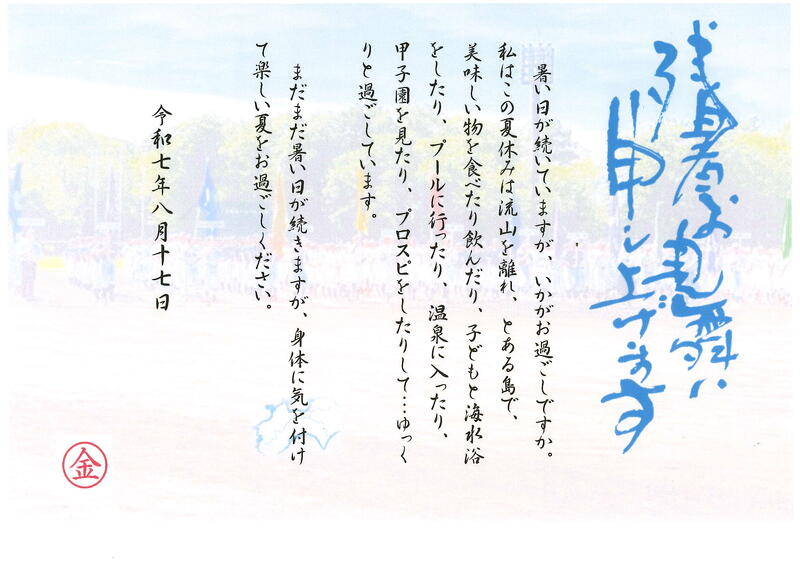 残暑お見舞い
申し上げます
暑い日が続いていますが、いかがお過ごしですか。
私はこの夏休みは流山を離れ、とある島で、
美味しい物を食べたり飲んだり、子どもと海水浴
をしたり、プールに行ったり、温泉に入ったり、
甲子園を見たり、プロスピをしたりして…ゆっく
りと過ごしています。
まだまだ暑い日が続きますが、身体に気を付け
て楽しい夏をお過ごしください。
令和七年八月十七日
金